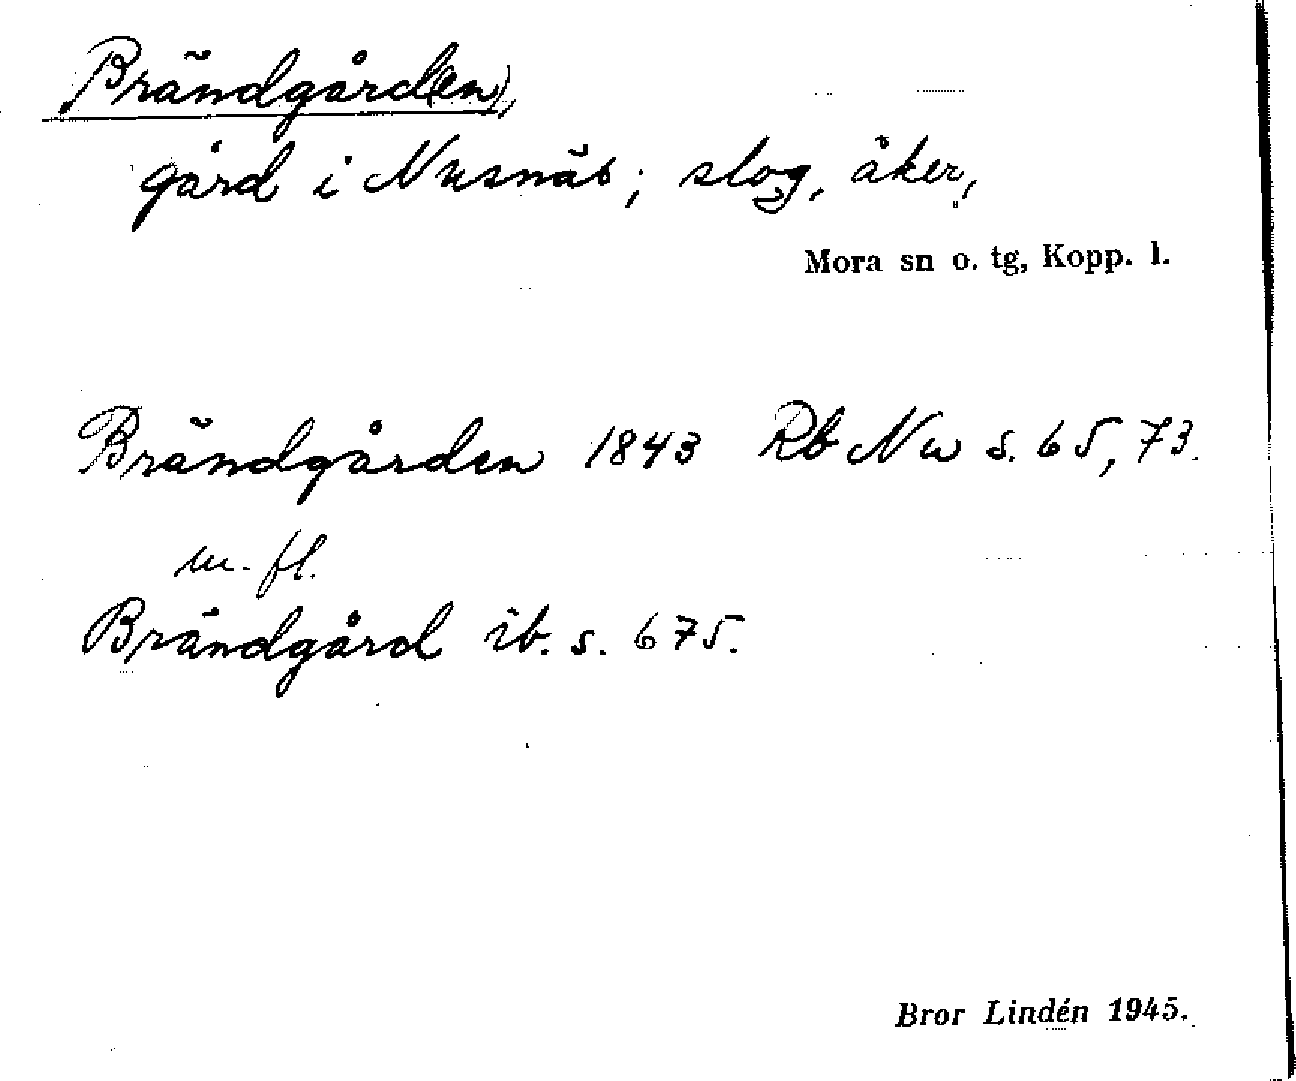 Brändgård(en),
gård i Nusnäs; slog, åker,
Mora sn o. tg, Kopp. l.
Brändgården 1843 Rb Nw s. 65, 73.
m. fl.
Brändgård ib. s. 675.
Bror Lindén 1945.